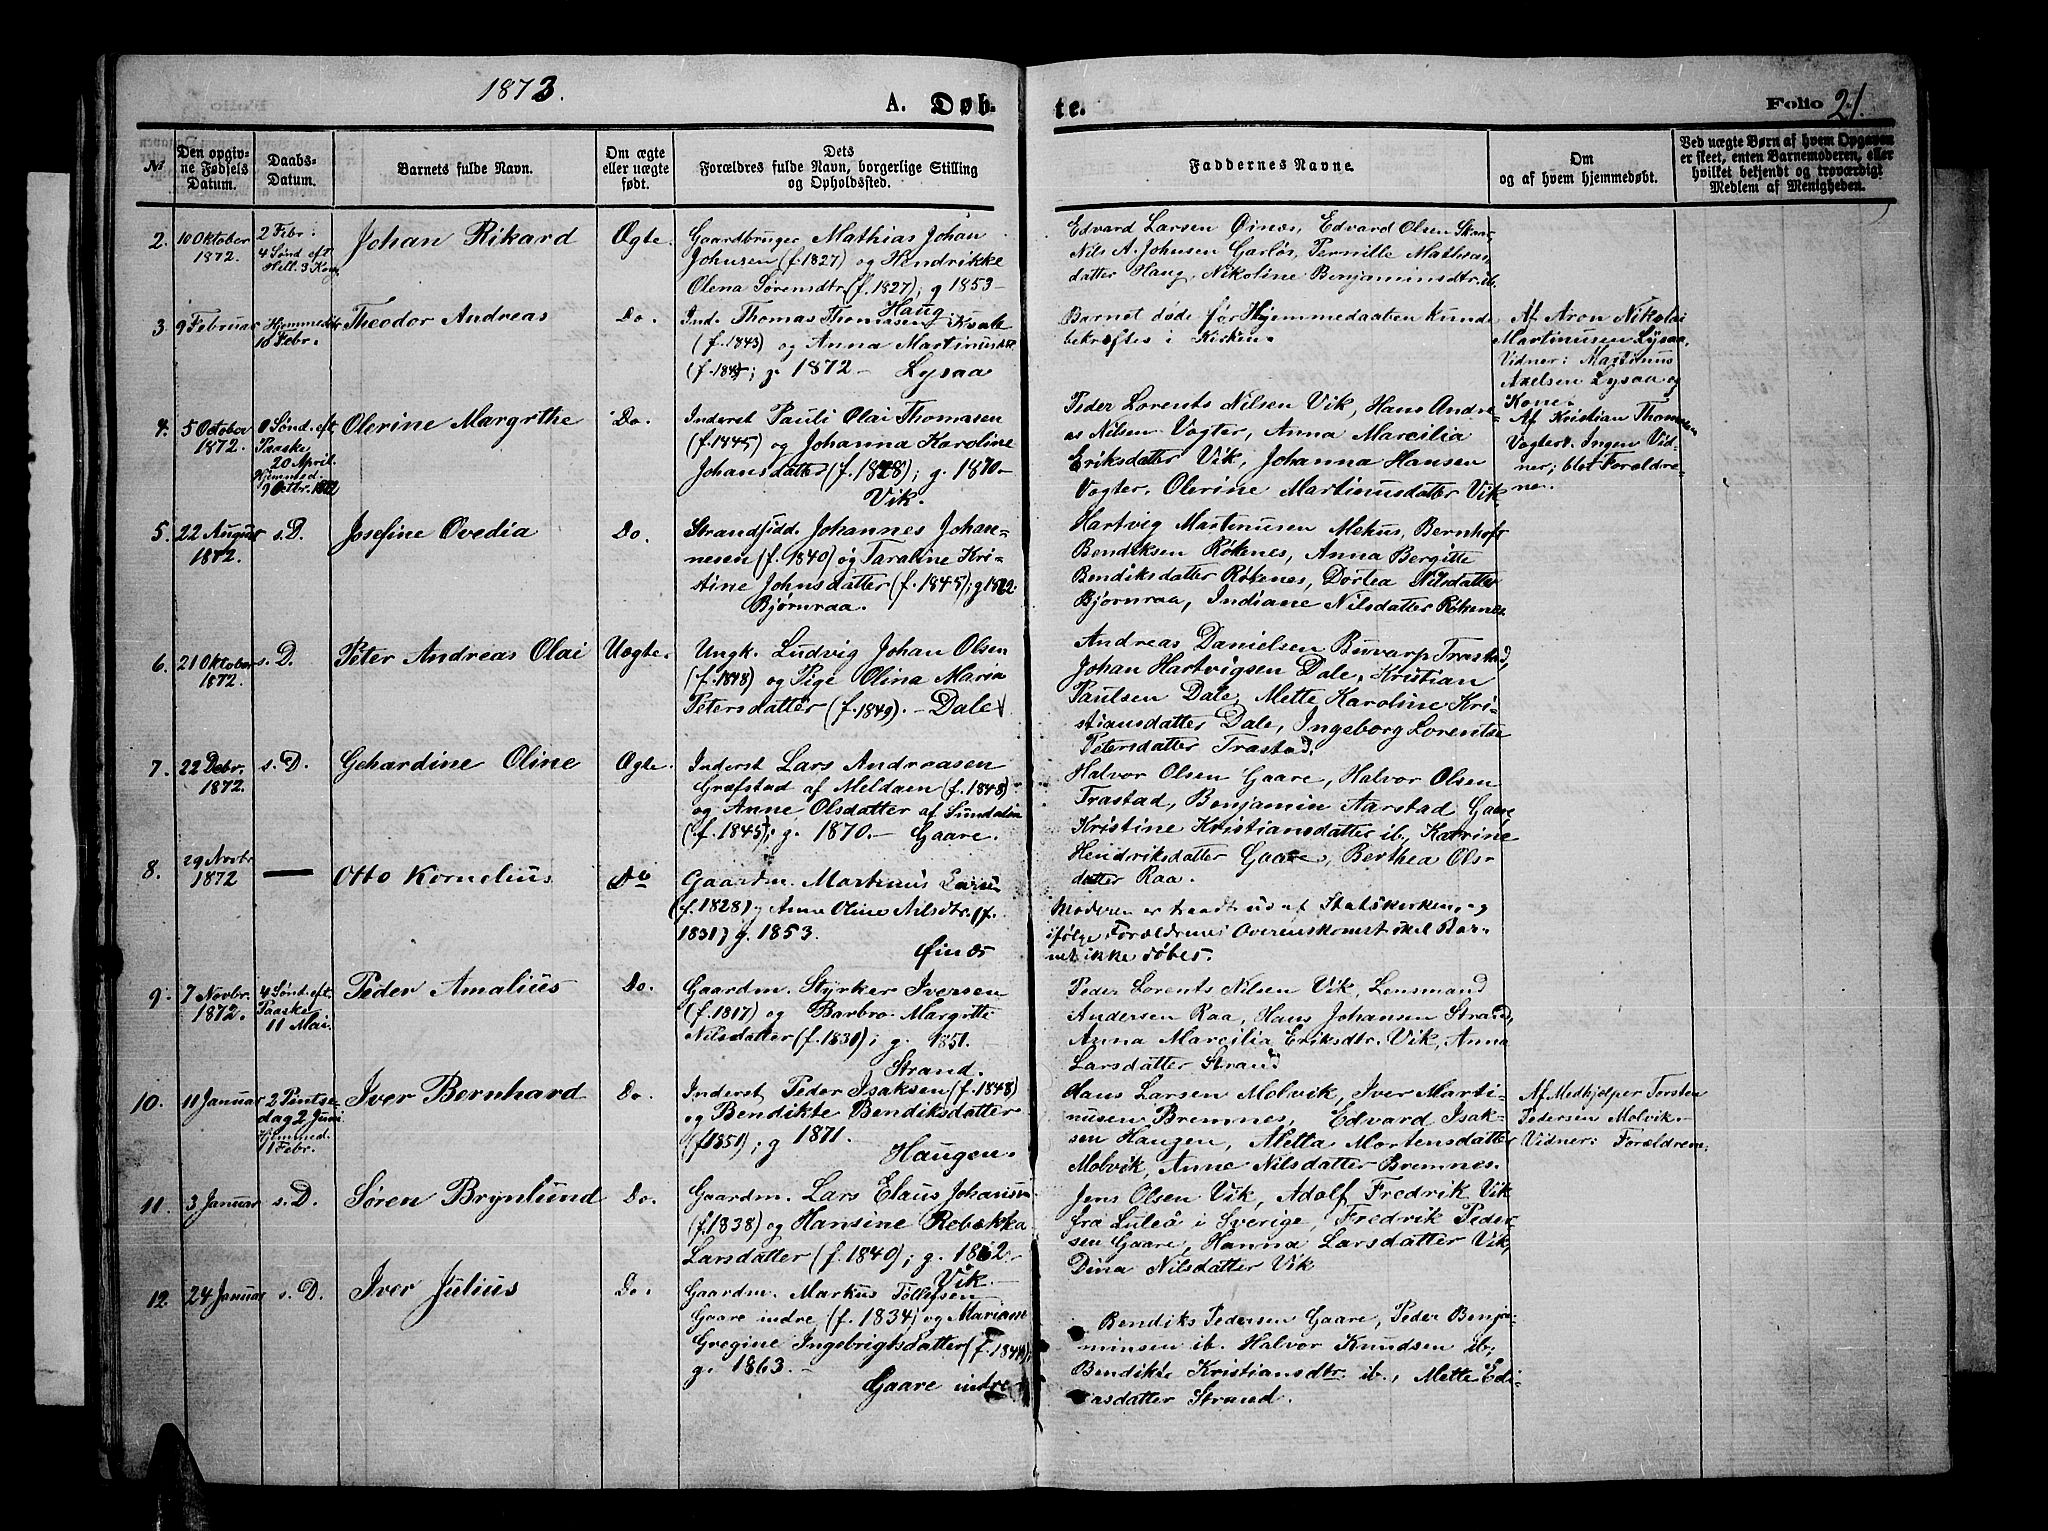 1873.
A. Døb-
te.
Folio 21.
№
Den opgiv-
ne Fødsels
Datum.
Daabs-
Datum.
Barnets fulde Navn.
Om ægte
eller uægte
født.
Dets
Forældres fulde Navn, borgerlige Stilling
og Opholdsted.
Faddernes Navne.
Om
og af hvem hjemmedøbt.
Ved uægte Børn af hvem Opgaven
er skeet, enten Barnemoderen, eller
hvilket bekjendt og troværdigt
Medlem af Menigheden.
2.
10 Oktober
1872.
2 Febr:
4 Sønd eft
Hell. 3 Kong
Johan Rikard
Ægte.
Gaardbruger Mathias Johan
Johnsen (f. 1827) og Hendrikke
Olena Sørensdtr (f. 1827); g 1853 -
Haug
Edvard Larsen Øinæs, Edvard Olsen Skaar,
Nils A. Johnsen Garløs, Pernille Mathias
datter Haug, Nikoline Benjaminsdtr ib.
3.
9 Februar
Hjemmedbt
16 Febr.
Theodor Andreas
Do.
Ind. Thomas Thomasen Kvale
(f. 1843) og Anna Martinusdtr
g. 1872 - Lysaa
Barnet døde før Hjemmedaaben kunde
bekræftes i Kirken.
Af Aron Nikolai
Martinusen Lysaa.
Vidner: Martinus
Axelsen Lysaa og
Kone.
4.
5 October
1872.
Sønd. eft
Paaske
20 April.
Hjemmed.
9 Octbr. 1872
Olerine Margrthe
Do.
Inderst Pauli Olai Thomasen
(f. 1845) og Johanna Karoline
Johansdatter (f. 1848); g. 1870 -
Vik.
Peder Lorents Nilsen Vik, Hans Andre-
as Nilsen Vogter, Anna Marcilia
Eriksdatter Vik, Johanna Hansen
Vogter, Olerine Martinusdatter Vik
Af Kristian Thomasen
Vogter. Ingen Vid-
ner; blot Forældre-
ne.
5.
22 August
1872.
s. D.
Josefine Ovedia
Do.
Strandsidd. Johannes Johan-
nesen (f. 1840) og Taraline Kri-
stine Johnsdatter (f. 1845); g 1862
Bjørnraa.
Hartvig Martinusen Mekus, Bernhoft
Bendiksen Røkenes, Anna Bergitte
Bendiksdatter Røkenes, Dortea Nilsdatter
Bjørnraa, Indiane Nilsdatter Røkenes
6.
21 Oktober
1872.
s. D.
Peter Andreas Olai
Uægte.
Ungk. Ludvig Johan Olsen
(f. 1848) og Pige Olina Maria
Petersdatter (f. 1849). - Dale
Andreas Danielsen Buvarp Trastad,
Johan Hartvigsen Dale, Kristian
Paulsen Dale, Mette Karoline Kri-
stiansdatter Dale, Ingeborg Lorentse
Petersdatter Trastad.
7.
22 Debr.
1872.
s. D.
Gehardine Oline
Ægte.
Inderst Lars Andreasen
Græfstad af Meldaen (f. 1848)
og Anne Olsdatter af Sundalen
(f. 1845); g. 1870. - Gaare.
Halvor Olsen Gaare, Halvor Olsen
Trastad, Benjamin Aarstad Gaare
Kristine Kristiansdatter ib, Katrine
Hendriksdatter Gaare, Berthea Ols-
datter Raa.
8.
29 Novbr
1872
—
Otto Kornelius
Do
Gaardm. Martinus Larsen
(f. 1828) og Anne Oline Nilsdtr. (f.
1831) g. 1853.
Øinæs
Moderen er traadt ud af Statskirken, og
ifølge Forældrenes Overenskomst skal Bar-
net ikke døbes.
9.
7 Novbr.
1872.
4 Sønd. eft.
Paaske
11 Mai.
Peder Amalius
Do.
Gaardm. Styrker Iversen
(f. 1817) og Barbro Margrtte
Nilsdatter (f. 1830); g. 1851.
Strand.
Peder Lorents Nilsen Vik, Lensmand
Andersen Raa, Hans Johansen Strand,
Anna Marcilia Eriksdtr. Vik, Anna
Larsdatter Strand
10.
11 Januar
2 Pintse-
dag 2 Juni.
Hjemmed.
11 Febr.
Iver Bernhard
Do.
Inderst Peder Isaksen (f. 1848)
og Bendikte Bendiksdatter
(f 1851); g 1871.
Haugen.
Hans Larsen Molvik, Iver Marti-
nusen Bremnes, Edvard Isak-
sen Haugen, Metta Mortensdatter
Molvik, Anne Nilsdatter Bremnes.
Af Medhjelper Torsten
Pedersen Molvik.
Vidner: Forældrene.
11.
3 Januar
s. D.
Søren Brynlund
Do.
Gaardm. Lars Elaus Johansen
(f. 1838) og Hansine Rebekka
Larsdatter (f. 1840); g. 1862.
Vik.
Jens Olsen Vik, Adolf Fredrik Vik
fra Luleå i Sverige, Fredrik Peder-
sen Gaare, Hanna Larsdatter Vik,
Dina Nilsdatter Vik
12.
24 Januar
s. D.
Iver Julius
Do.
Gaardm. Markus Tollefsen
Gaare indre (f. 1834) og Mariane
Gregine Ingebrigtsdatter
g. 1863. -
Gaare indre
Bendiks Pedersen Gaare, Peder Benja-
minsen ib. Halvor Knudsen ib,
Bendikte Kristiansdtr ib., Mette Edi-
asdatter Strand.